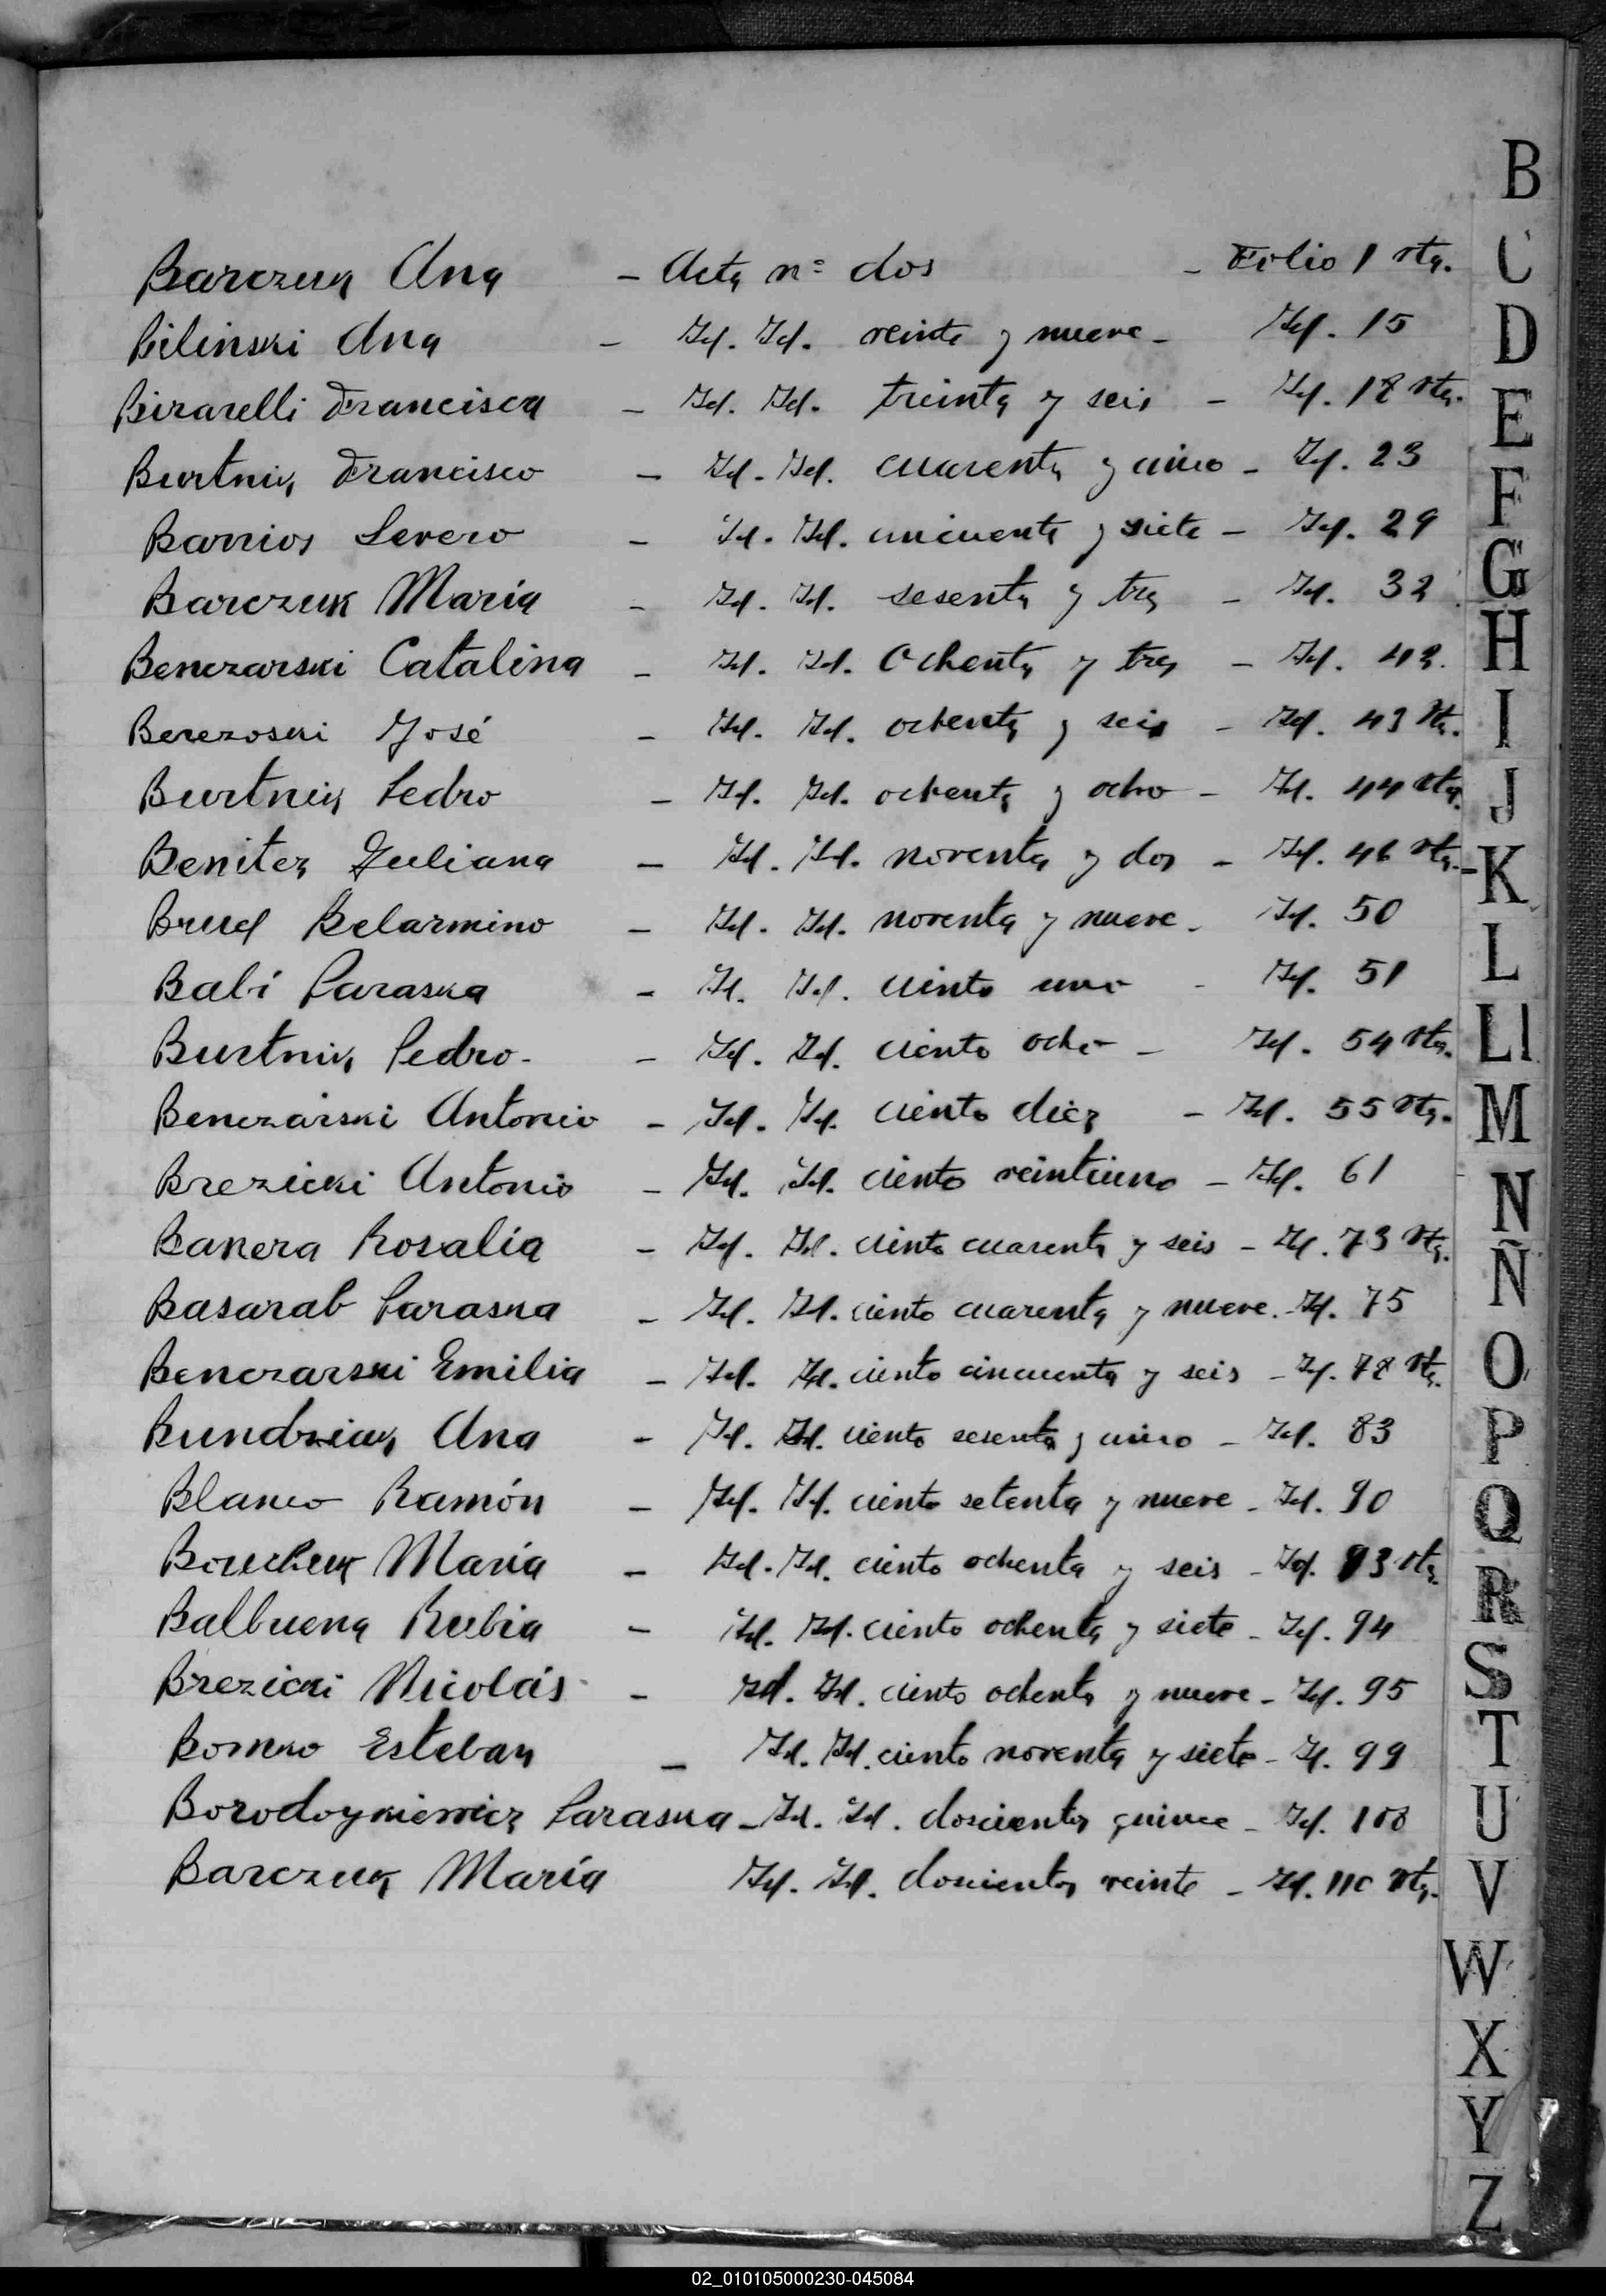 Barczuk Ana - Acta nº dos - Folio 1 vta.
Bilinski Ana - Id. Id. veinte y nueve - Id. 15
Birarelli Francisca - Id. Id. treinta y seis - Id. 18 vta.
Burtnik Francisco - Id. Id. cuarenta y cinco - Id. 23
Barrios Severo - Id. Id. cincuenta y siete - Id. 29
Barczuk María - Id. Id. sesenta y tres - Id. 32
Benczarski Catalina - Id. Id. Ochenta y tres - Id. 42.
Berezoski José - Id. Id. ochenta y seis - Id. 43 vta.
Burtnik Pedro - Id. Id. ochenta y ocho - Id. 44 vta.
Benitez Juliana - Id. Id. noventa y dos - Id. 46 vta.
Brud Belarmino - Id. Id. noventa y nueve - Id. 50
Babi Paraska - Id. Id. ciento uno - Id. 51
Burtnik Pedro - - Id. Id. ciento ocho - Id. 54 vta.
Benczarski Antonio - Id. Id. ciento diez - Id. 55 vta.
Brezicki Antonio - Id. Id. ciento veintiuno - Id. 61
Bakera Rosalía - Id. Id. ciento cuarenta y seis - Id. 73 vta.
Basarab Paraska - Id. Id. ciento cuarenta y nueve - Id. 75
Benczarski Emilia - Id. Id. ciento cincuenta y seis - Id. 78 vta.
Bundziak Ana - Id. Id. ciento sesenta y cinco - Id. 83
Blanco Ramón - Id. Id. ciento setenta y nueve - Id. 90
María - Id. Id. ciento ochenta y seis - Id. 93 vta.
Balbuena Rubia - Id. Id. ciento ochenta y siete - Id. 94
Brezicki Nicolás - Id. Id. ciento ochenta y nueve - Id. 95
Bomko Esteban - Id. Id. ciento noventa y siete - Id. 99
Borodoykiewicz Paraska - Id. Id. doscientos quince - Id. 108
Barczuk María Id. Id. doscientos veinte - Id. 110 vta.
B
C
D
E
F
G
H
I
J
K
L
Ll
M
N
Ñ
O
P
Q
R
S
T
U
V
W
X
Y
Z
02_010105000230-045084